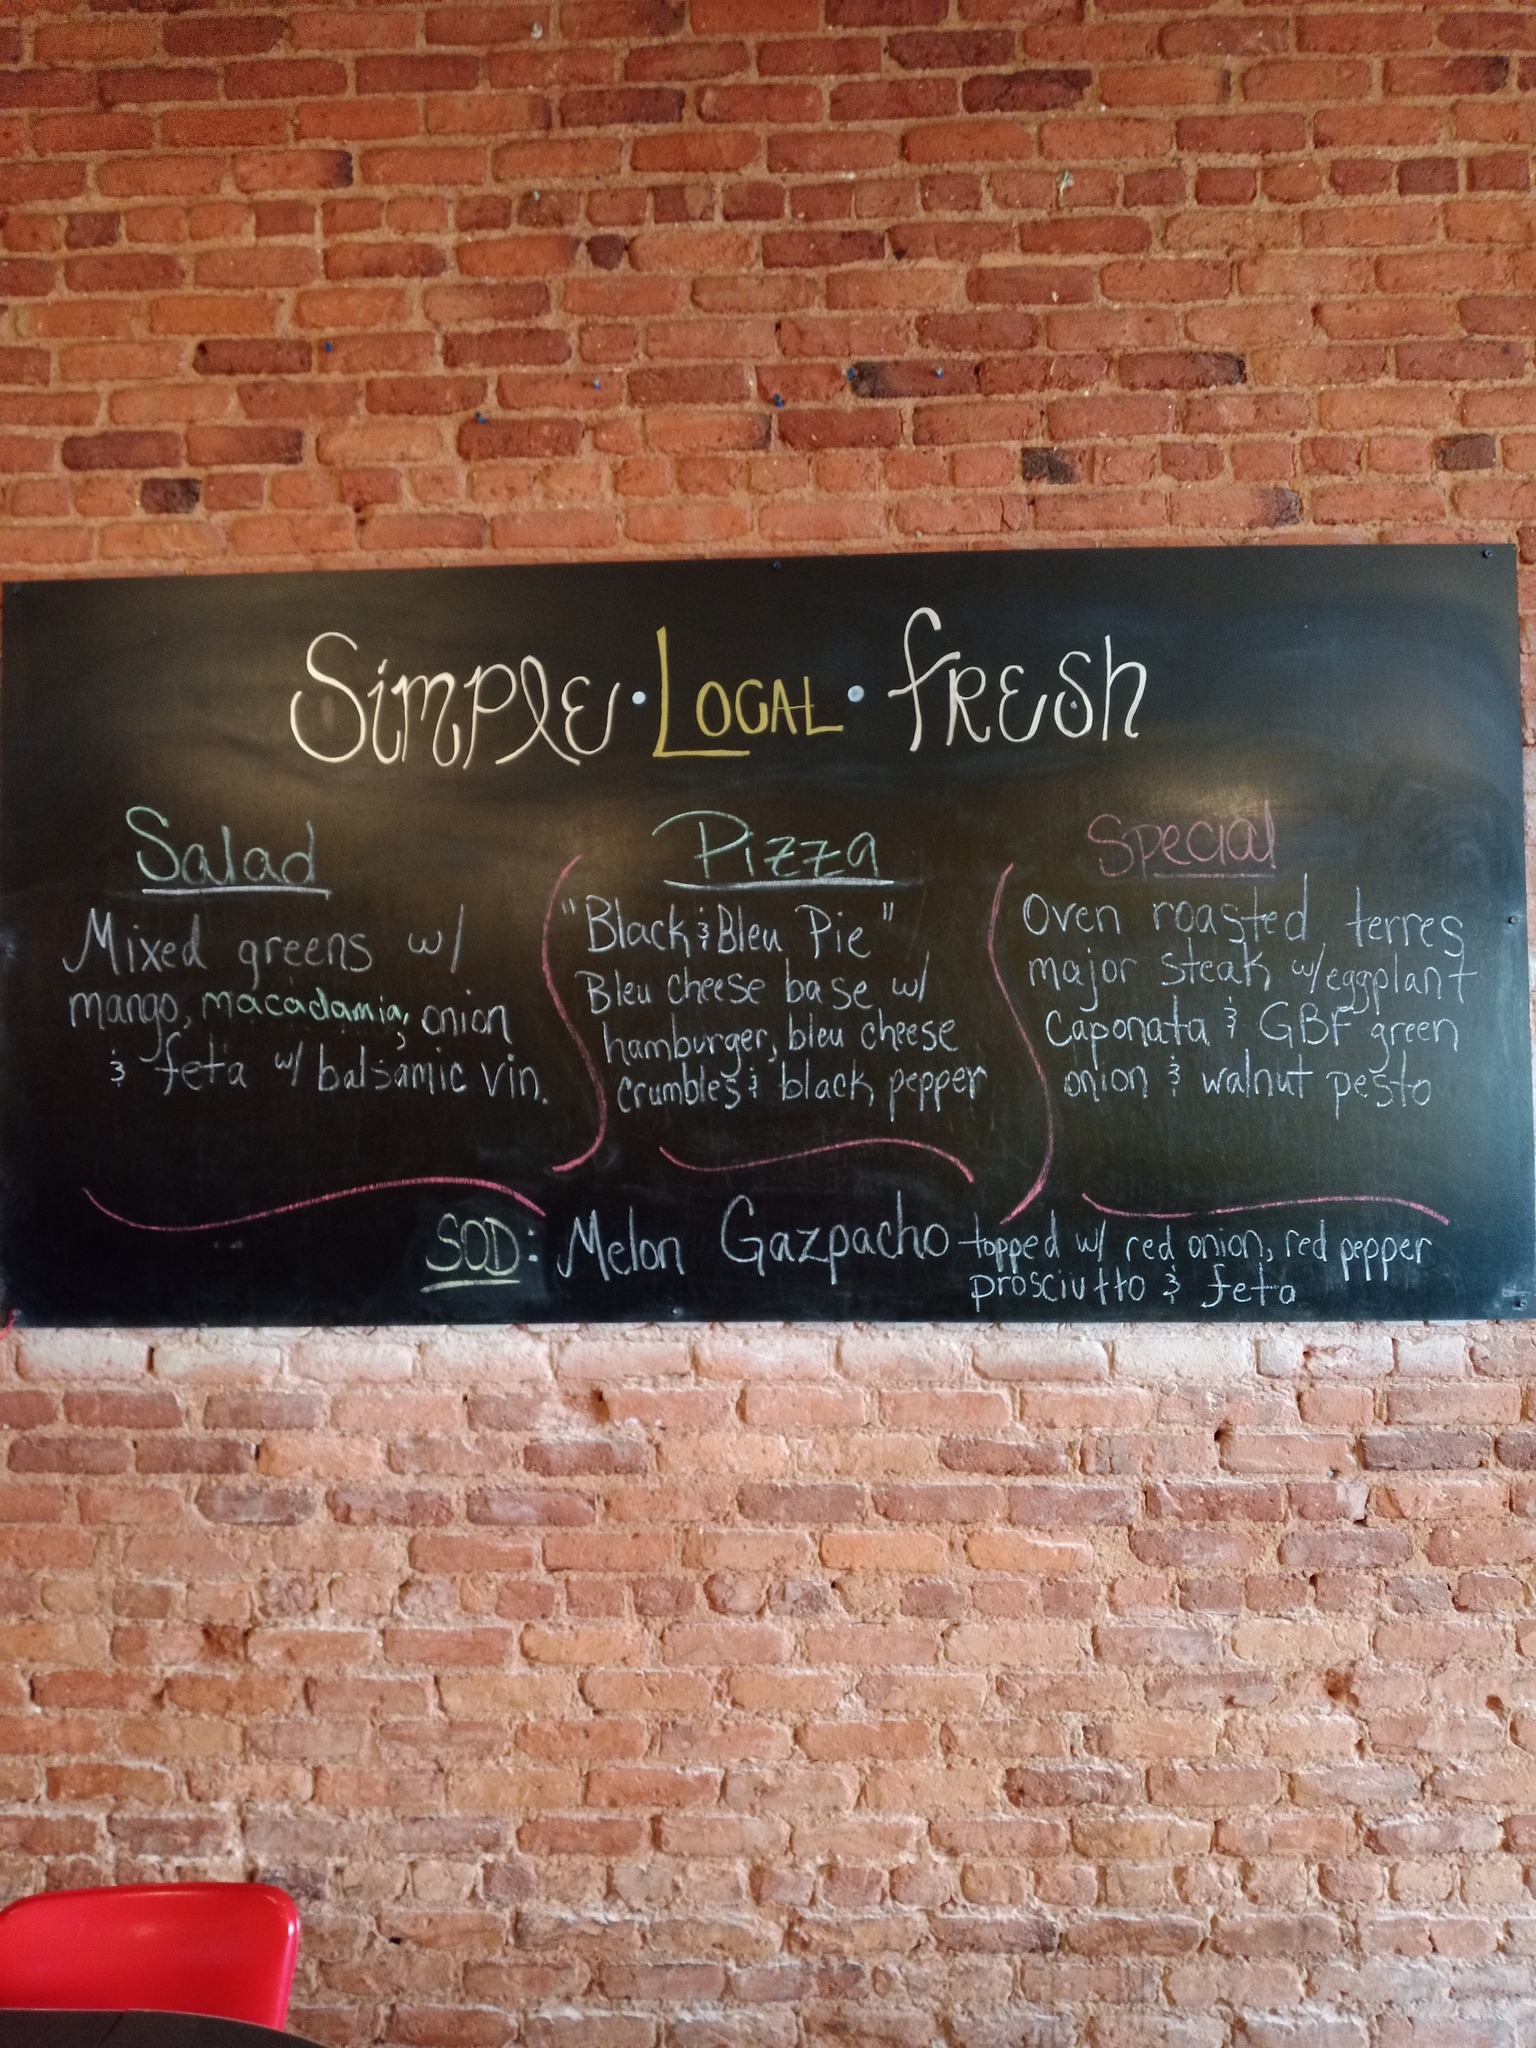 Simple • Local • Fresh
Salad
Mixed greens w/
mango, macadamia, onion
& feta w/ balsamic vin.
Pizza
"Black & Bleu Pie"
Bleu cheese base w/
hamburger, bleu cheese
crumbles & black pepper
Special
Oven roasted terres
major steak w/ eggplant
Caponata & GBF green
onion & walnut pesto
SOD: Melon Gazpacho topped w/ red onion, red pepper
prosciutto & feta